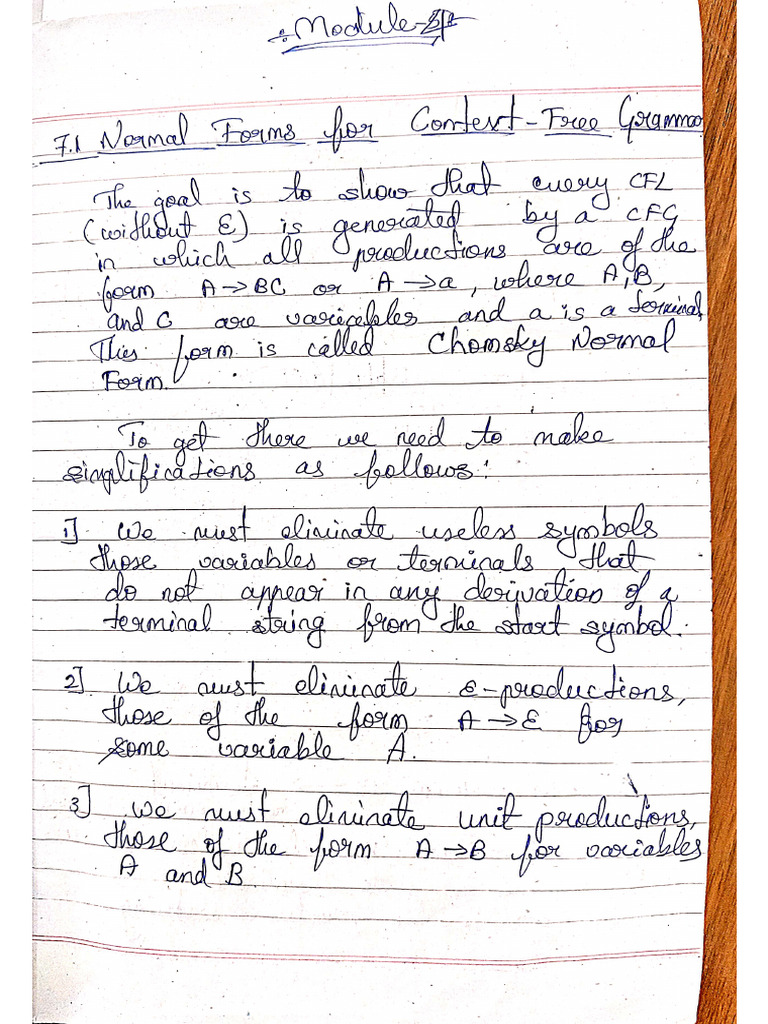 ÷ Module-
7.1 Normal Forms for Context-Free Grammar
The goal is to show that every CFL
(without ε) is generated by a CFG
in which all productions are of the
form A→BC or A→a, where A, B,
and C are variables and a is a terminal
This form is called Chomsky Normal
Form.
To get there we need to make
simplifications as follows:
1] We must eliminate useless symbols
those variables or terminals that
do not appear in any derivation of a
terminal string from the start symbol.
2] We must eliminate ε-productions,
those of the form A→ε for
some variable A.
3] We must eliminate unit productions,
those of the form A→B for variables
A and B.